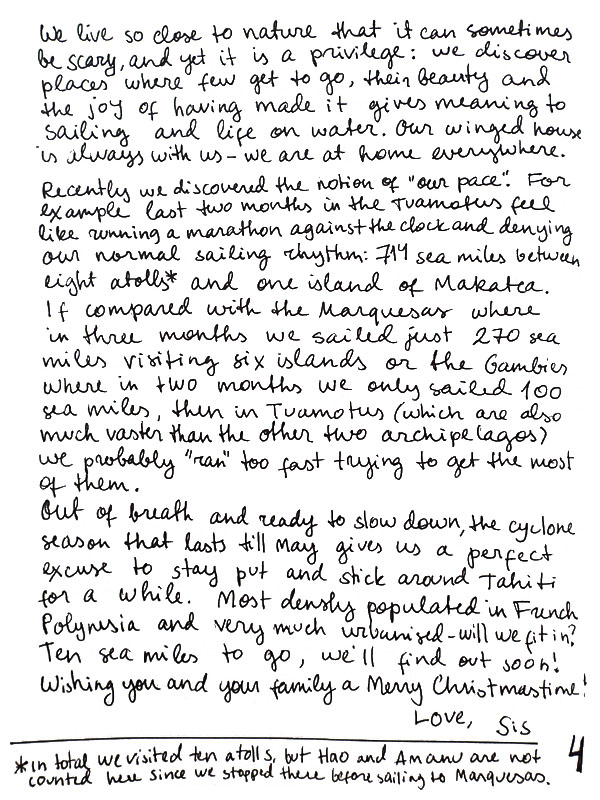 We live so close to nature that it can sometimes
be scary, and yet it is a privilege: we discover
places where few get to go, their beauty and
the joy of having made it gives meaning to
sailing and life on water. Our winged house
is always with us - we are at home everywhere.
Recently we discovered the notion of "our pace". For
example last two months in the Tuamotus feel
like running a marathon against the clock and denying
our normal sailing rhythm: 714 sea miles between
eight atolls* and one island of Makatea.
If compared with the Marquesas where
in three months we sailed just 270 sea
miles visiting six islands or the Gambier
where in two months we only sailed 100
sea miles, then in Tuamotus (which are also
much vaster than the other two archipelagos)
we probably "ran" too fast trying to get the most
of them.
Out of breath and ready to slow down, the cyclone
season that lasts till May gives us a perfect
excuse to stay put and stick around Tahiti
for a while. Most densly populated in French
Polynesia and very much urbanised - will we fit in?
Ten sea miles to go, we'll find out soon!
Wishing you and your family a Merry Christmastime!
Love, Sis
*in total we visited ten atolls, but Hao and Amanu are not
counted here since we stopped there before sailing to Marquesas.
4